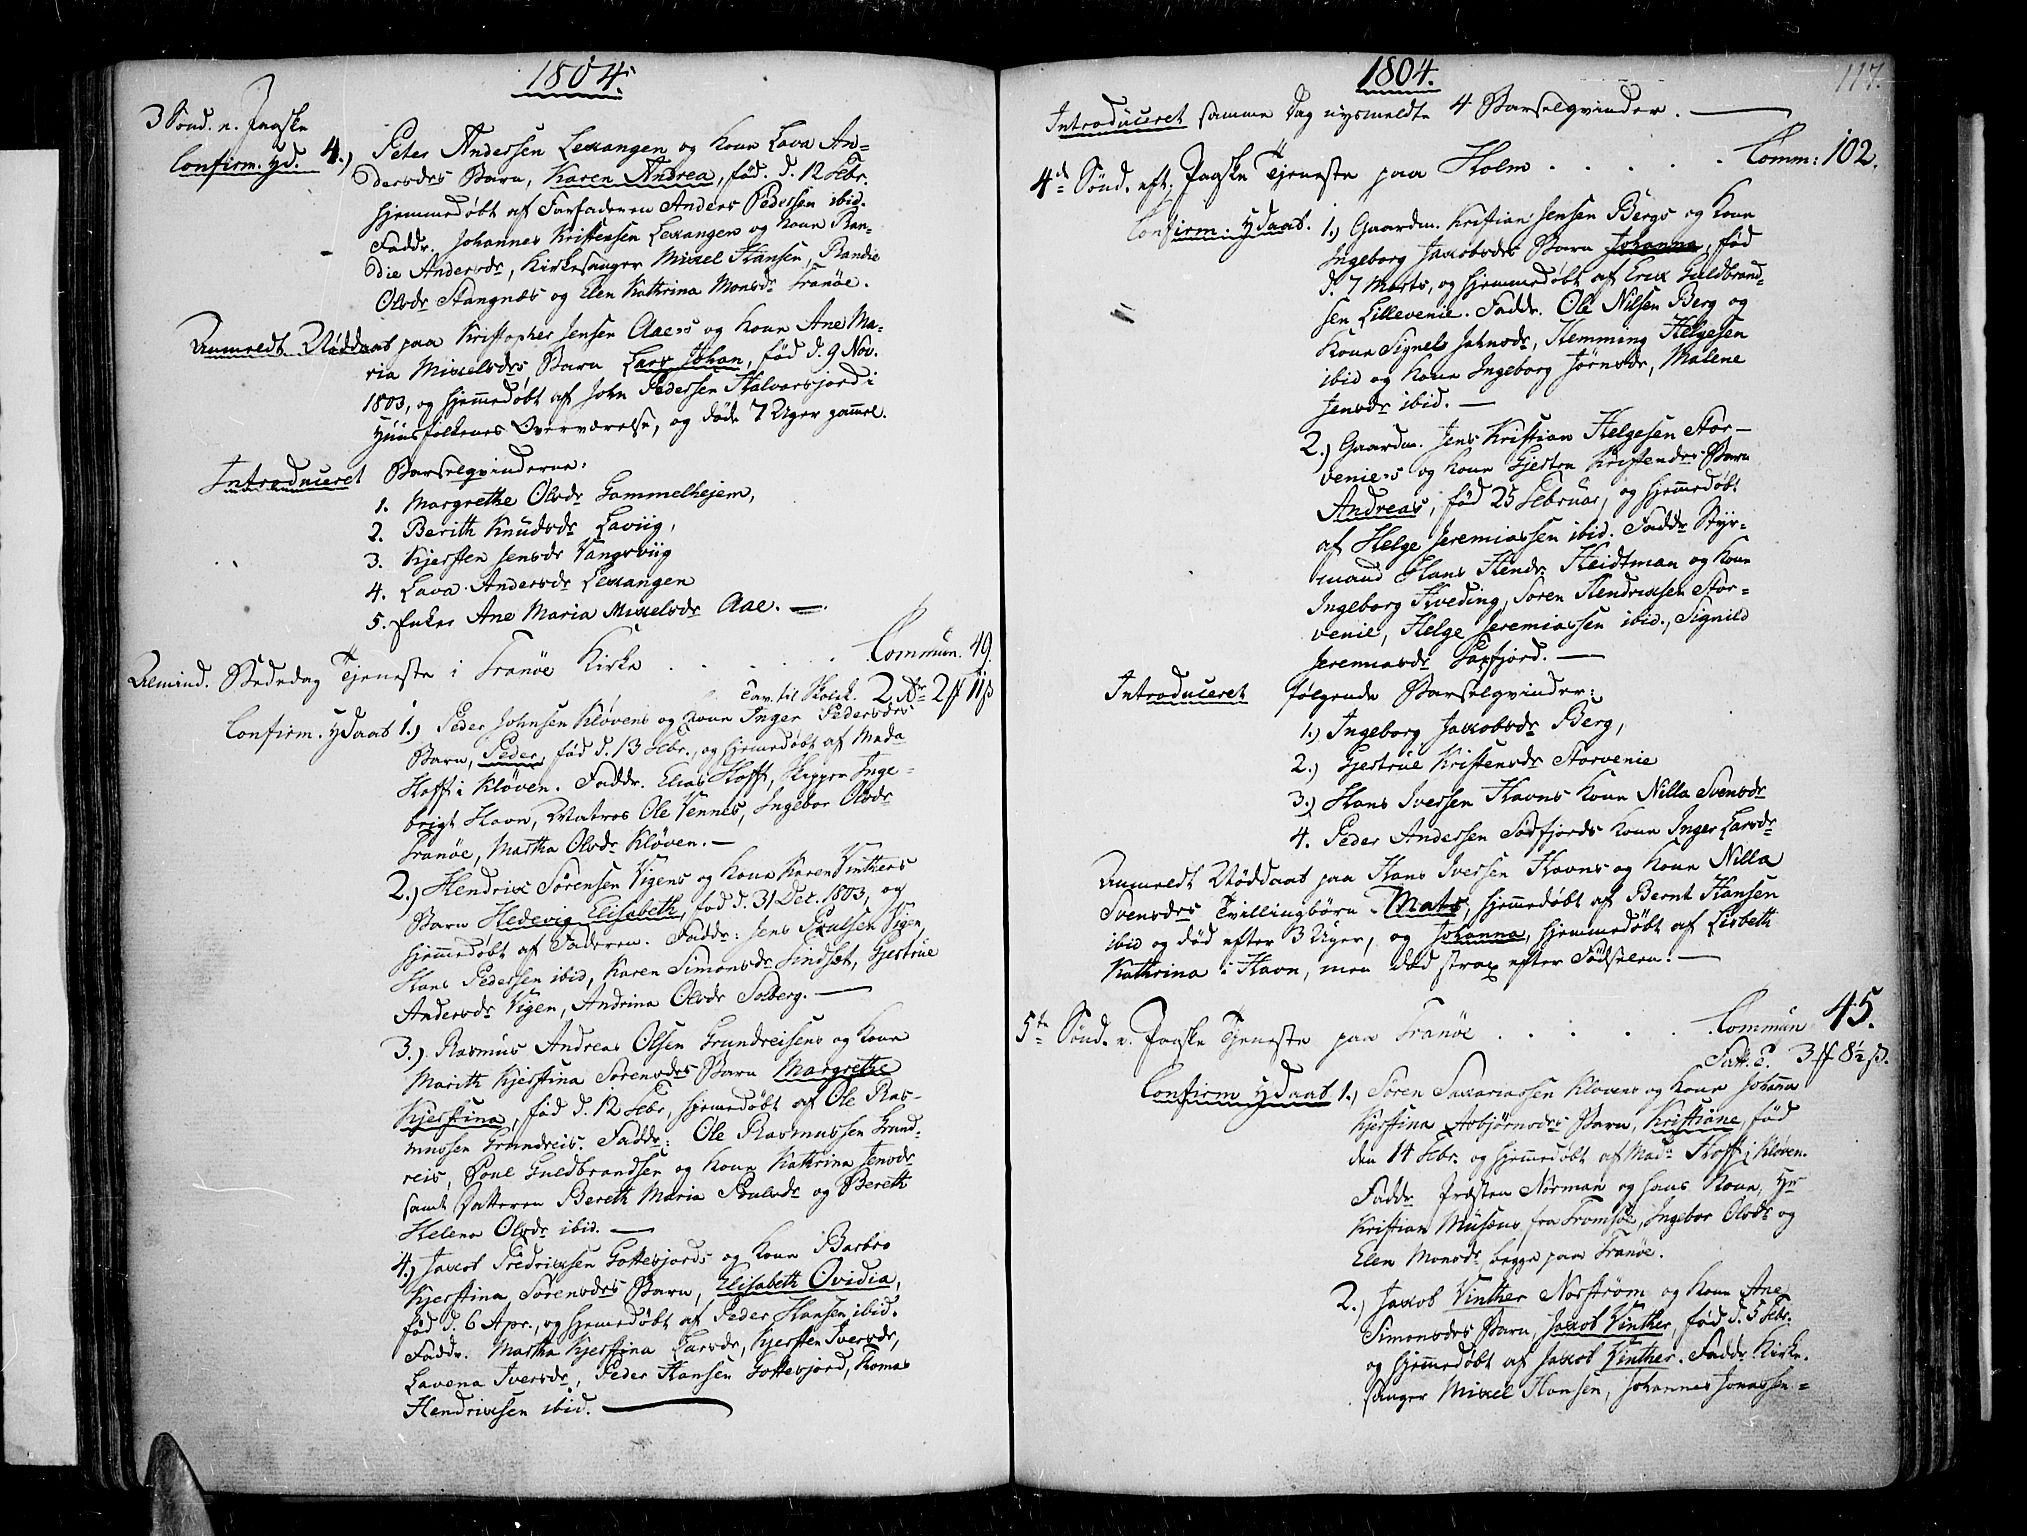 1804.
3 Sønd. e. Paaske
Confirm. Hd. 4.) Peter Andersen Lexangen og Kone Lava An-
dersdrs Barn, Karen Andrea, fød. d. 12 Febr.
hjemmedøbt af Farfaderen Anders Pedersen ibid.
Faddr. Johannes Kristensen Lexangen og Kone Ran-
die Andersdr, Kirkesanger Mixel Hansen, Randie
Olsdr Stangnæs og Elen Kathrina Monsdr Tranöe.
Anmeldt Nöddaab paa Kristopher Jensen Aaes og Kone Ane Ma-
ria Mixelsdrs Barn Lars Johan, fød d. 9 Nov.
1803, og hjemmedøbt af John Pedersen Halvarsjord i
Huusfolkenes Overværelse, og døde 7 Uger gammel.
Introduceret Barselqvinderne:
1. Margrethe Olsdr Gammelhejem,
2. Berith Knudsdr Laviig,
3. Kjersten Jensdr Vangsviig
4. Lava Andersdr Lexangen
5. Enke Ane Maria Mixelsdr Aae.
Almind. Bededag Tjeneste i Tranöe Kirke . . . . . Commun. 49.
Tav. til Skolek. 2 Rr 2 ℔ 11 ß
Confirm. Hdaab 1.) Peder Johnsen Kløvens og Kone Inger Pedersdrs
Barn, Peder, fød d. 13 Febr., og hjemmedøbt af Mada
Hofft i Kløven. Faddr. Elias Hofft, Skipper Inge-
brigt Havn, Matros Ole Vennes, Ingebor Olsdr
Tranöe, Martha Olsdr Kløven. —
2.) Hendrix Sørensen Vigens og Kone Karen Vinthers
Barn Hedevig Elisabeth, fød d. 31 Dec. 1803, og
hjemmedøbt af Faderen. Faddr: Jens Paulsen Vigen,
Hans Pedersen ibid, Karen Simonsdr Lindset, Gjertrue
Andersdr Vigen, Andrina Olsdr Solberg. —
3.) Rasmus Andreas Olsen Grundreisens og Kone
Marith Kjerstina Sorensdrs Barn Margrethe
Kjerstina, fød d. 12 Febr, hjemmedøbt af Ole Ras-
mussen Grundreis. Faddr: Ole Rasmussen Grund-
reis, Poul Guldbrandsen og Kone Kathrina Jensdr
samt Datteren Bereth Maria Poulsdr og Bereth
Helena Olsdr ibid. —
4.) Jaxob Fredrixsen Gottesjords og Kone Barbro
Kjerstina Sørensdrs Barn, Elisabeth Ovidia,
fød d. 6 Apr., og hjemmedøbt af Peder Hansen ibid.
Faddr. Martha Kjerstina Larsdr, Kjersten Iversdr,
Lavena Iversdr, Peder Hansen Gottesjord, Thomas
Hendrixsen ibid.
1804.
117.
Introduceret samme Dag nysmeldte 4 Barselqvinder.
4d Sönd. eft. Paaske Tjeneste paa Holm . . . . . Comm: 102.
Confirm. Hdaab. 1.) Gaardm. Kristian Jensen Bergs og Kone
Ingeborg Jaxobsdrs Barn Johanna, fød
d. 7 Marts, og hjemmedøbt af Erix Guldbrand-
sen Lillevenie. Faddr. Ole Nilsen Berg og
Kone Signel Johnsdr, Hemming Helgesen
ibid og Kone Ingeborg Jørnsdr, Malene
Jensdr ibid. —
2.) Gaardm. Jens Kristian Helgesen Stor-
venies og Kone Gjertru Kristensdrs Barn
Andreas, fød 25 Februar, og hjemmedøbt
af Helge Jeremiassen ibid. Faddr Styr-
mand Hans Hendr. Heidtman og Kone
Ingeborg Kveding, Soren Hendrixsen Stor-
venie, Helge Jeremiassen ibid., Signild
Jeremiasdr Saxfjord. —
Introduceret følgende Barselqvinder:
1.) Ingeborg Jaxobsdr Berg,
2.) Gjertrue Kristensdr Storvenie
3.) Hans Iversen Havns Kone Nilla Svensdr
4. Peder Andersen Sörfjords Kone Inger Larsdr
Anmeldt Nöddaab paa Hans Iversen Havns og Kone Nilla
Svensdrs Tvillingbörn Mats, hjemmedøbt af Bernt Hansen
ibid og død efter 3 Uger, og Johanna, hjemmedøbt af Lisbeth
Kathrina i Havn, men død strax efter Fødselen. —
5te Sönd. e. Paaske Tjeneste paa Tranöe . . . . . Commun 45.
Fatt. C. 3 ℔ 8½ ß.
Confirm Hdaab 1.) Søren Saxariassen Klovens og Kone Johanna
Kjerstina Asbjørnsdr Barn, Kristiane, fød
den 14 Febr. og hjemmedøbt af Mad: Hofft i Kløven.
Faddr Præsten Norman og hans Kone, Hr
Kristian Musæus fra Tromsöe, Ingebor Olsdr og
Elen Monsdr, begge paa Tranöe.
2.) Jaxob Vinther Norström og Kone Ane
Simonsdrs Barn, Jaxob Vinther, fød d. 5 Febr.
og hjemmedøbt af Jaxob Vinther. Faddr. Kirke-
sanger Mixel Hansen, Johannes Jonassen =